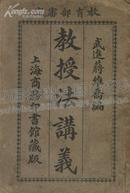 教育部審
武進蔣維喬編
教授法講義
上海商務印書館藏版